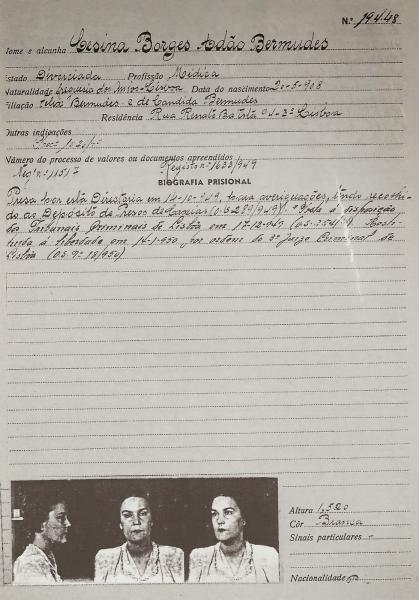 N.º 19448
Nome e alcunha Cesina Borges Adão Bermudes
Estado Divorciada Profissão Médica
Naturalidade Freguesia dos Anjos-Lisboa Data do nascimento 20-5-908
Filiação Felix Bermudes e de Candida Bermudes
Residência Rua Renato Batista 3º Lisboa
Outras indicações
Proc.
Número do processo de valores ou documentos apreendidos
Registo n.º 1633/949
Reg. n.º 11517
BIOGRAFIA PRISIONAL
Presa por esta Directoria em 14-10-949, para averiguações, tendo recolhi-
do ao Depósito de Presos de Caxias (O.S. 289/949). Posta à disposição
dos Tribunais Criminais de Lisboa em 17-12-949 (O.S. 354). Resti-
tuida à liberdade em 14-1-950, por ordem do 3º Juizo Criminal de
Lisboa (O.S. nº 18/950)
Altura 1,520
Côr Branca
Sinais particulares -
Nacionalidade